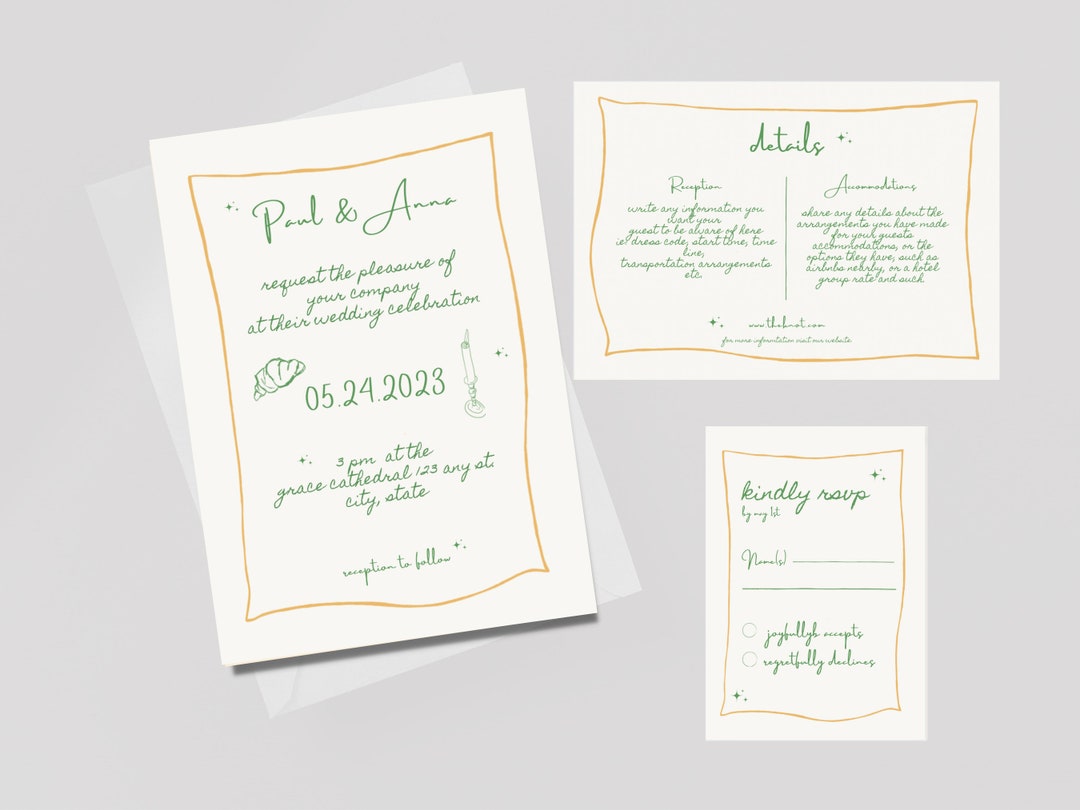 Paul & Anna
request the pleasure of
your company
at their wedding celebration
05.24.2023
3 pm at the
grace cathedral 123 any st.
city, state
reception to follow
details
Reception
write any information you
want your
guest to be aware of here
ie: dress code, start time, time
line,
transportation arrangements
etc.
Accommodations
share any details about the
arrangements you have made
for your guests
accommodations, or the
options they have, such as
airbnbs nearby, or a hotel
group rate and such.
www.theknot.com
for more information visit our website
kindly rsvp
by may 1st
Name(s)
joyfullyb accepts
regretfully declines